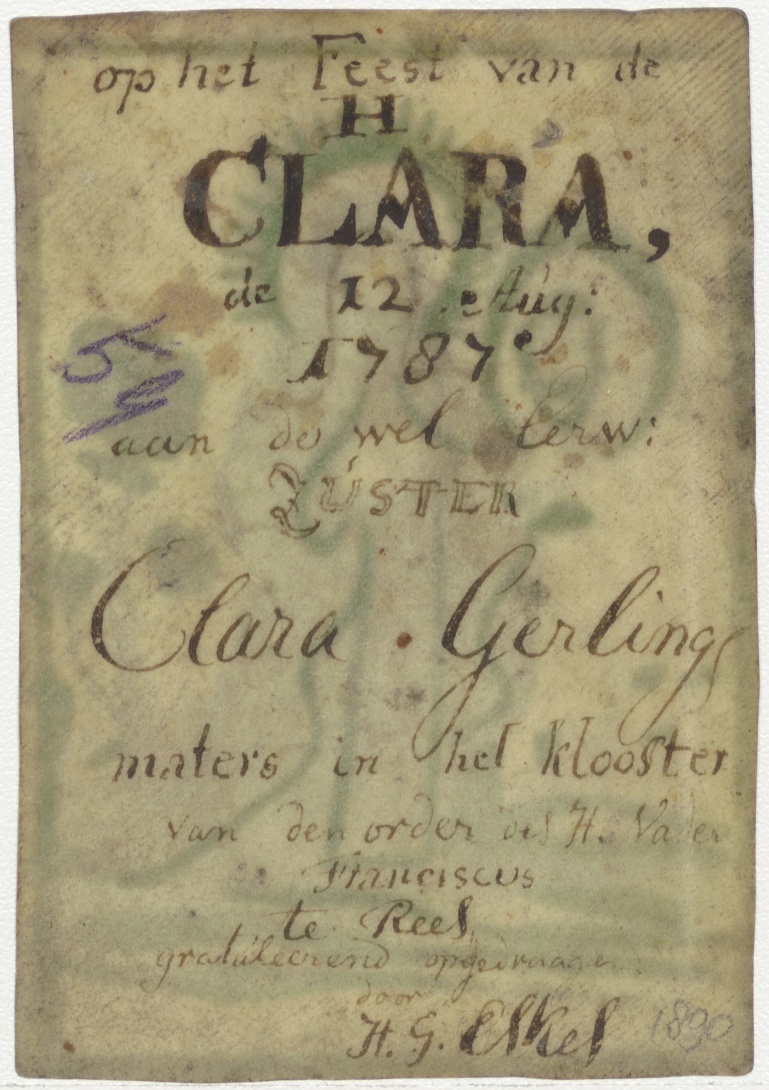 op het Feest van de
H
CLARA,
de 12.e Aug:
1787.
59
aan de wel Eerw:
ZÚSTER
Clara . Gerlings
maters in het klooster
van den order des H. Vader
Franciscus
te Rees
gratúleerend opgedraagen
door
H. G. Elkel
1890